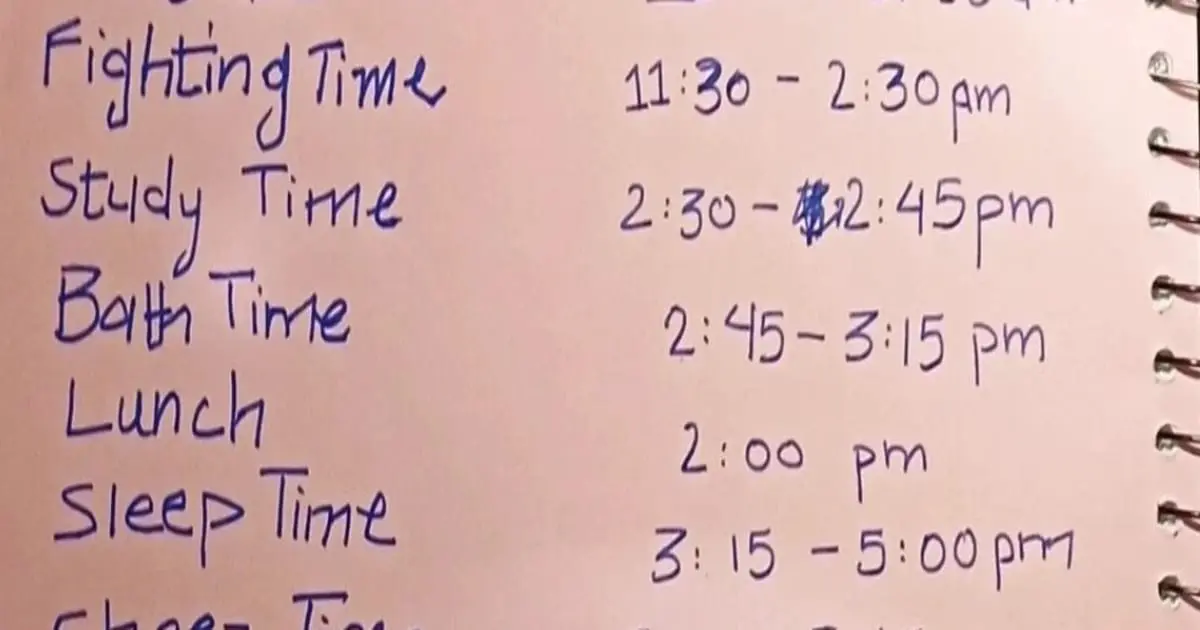 Fighting Time 11:30 - 2:30 pm
Study Time 2:30 - 2:45 pm
Bath Time 2:45 - 3:15 pm
Lunch 2:00 pm
Sleep Time 3:15 - 5:00 pm